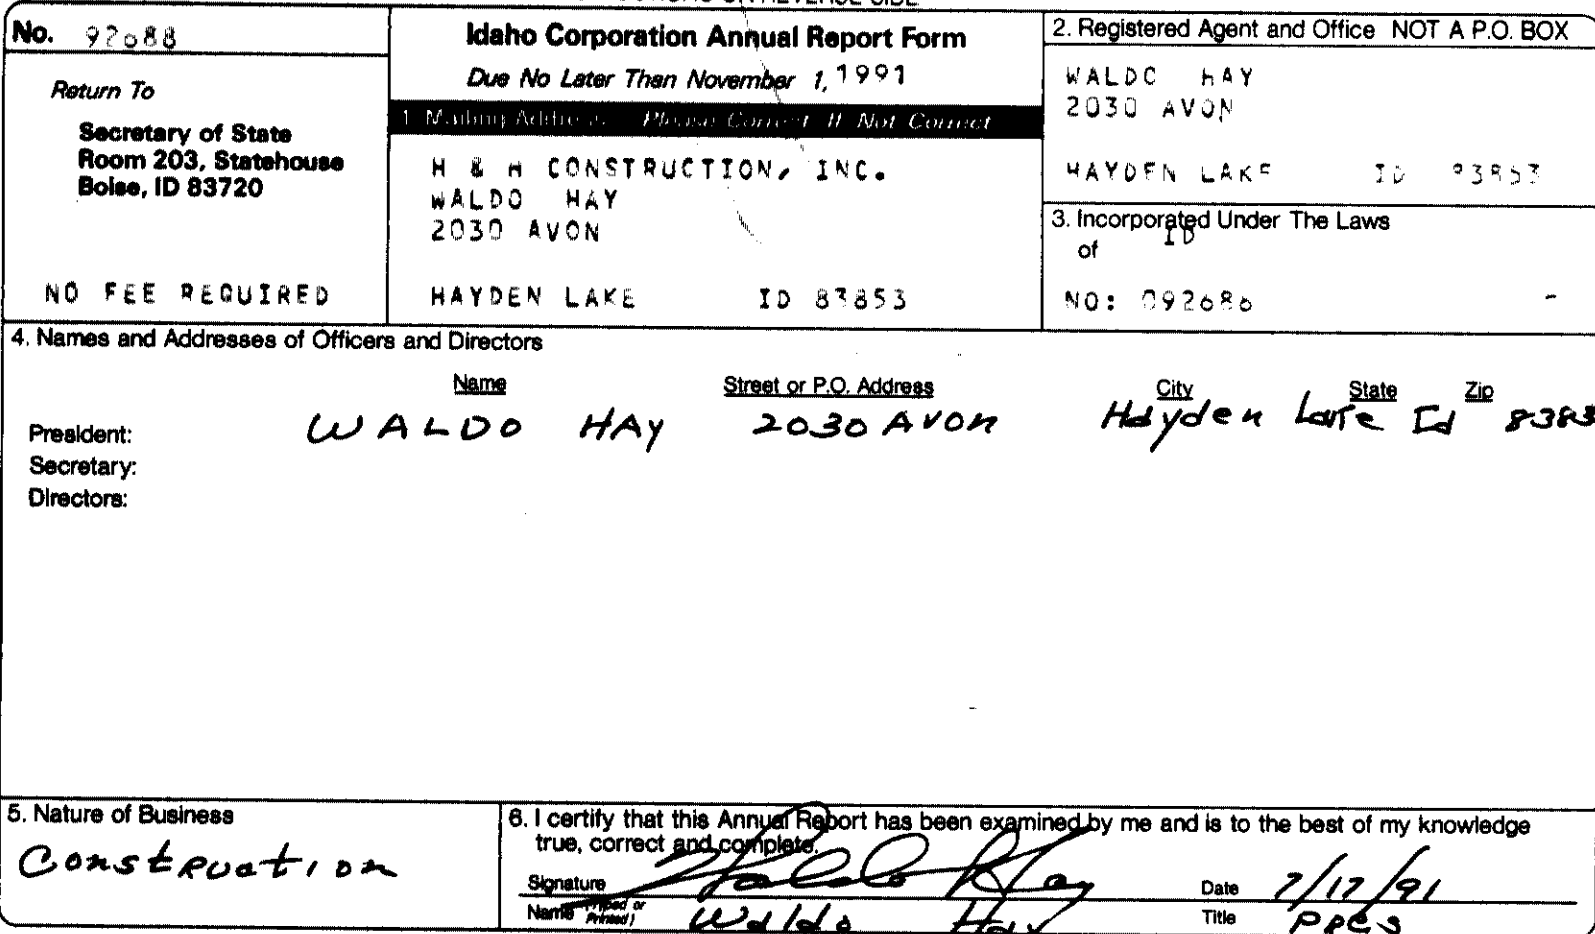 REVERSE SIDE
No. 92688
Idaho Corporation Annual Report Form
Due No Later Than November 1, 1991
Return To
Secretary of State
Room 203, Statehouse
Boise, ID 83720
NO FEE REQUIRED
1 Mailing Address Please Correct If Not Correct
H & H CONSTRUCTION, INC.
WALDO HAY
2030 AVON
HAYDEN LAKE ID 83853
2. Registered Agent and Office NOT A P.O. BOX
WALDO HAY
2030 AVON
HAYDEN LAKE ID 83853
3. Incorporated Under The Laws
of ID
NO: 092688
4. Names and Addresses of Officers and Directors
Name Street or P.O. Address City State Zip
President: WALDO HAY 2030 Avon Hayden Lake Id
Secretary:
Directors:
5. Nature of Business
Construction
6. I certify that this Annual Report has been examined by me and is to the best of my knowledge
true, correct and complete.
Signature Waldo Hay Date 7/17/91
Name (Typed or Printed) Waldo Hay Title Pres